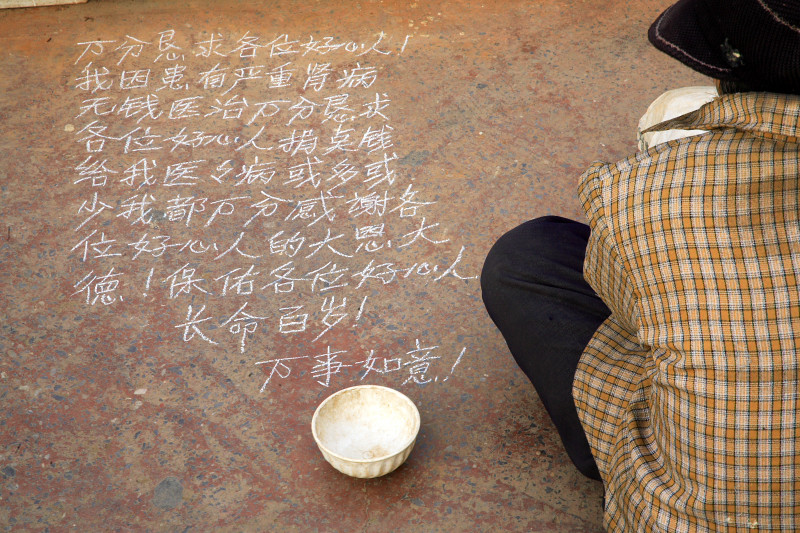 万分恳求各位好心人！
我因患有严重肾病
无钱医治万分恳求
各位好心人捐点钱
给我医医病或多或
少我都万分感谢各
位好心人的大恩大
德！保佑各位好心人
长命百岁！
万事如意！